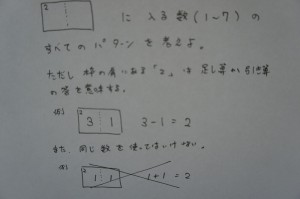 2 に入る数(1~7)の
すべてのパターンを考えよ。
ただし枠の肩にある「2」は足し算か引き算
の答を意味する。
例) 2 3 1 3-1=2
また、同じ数を使ってはいけない。
例) 2 1 1 1+1=2